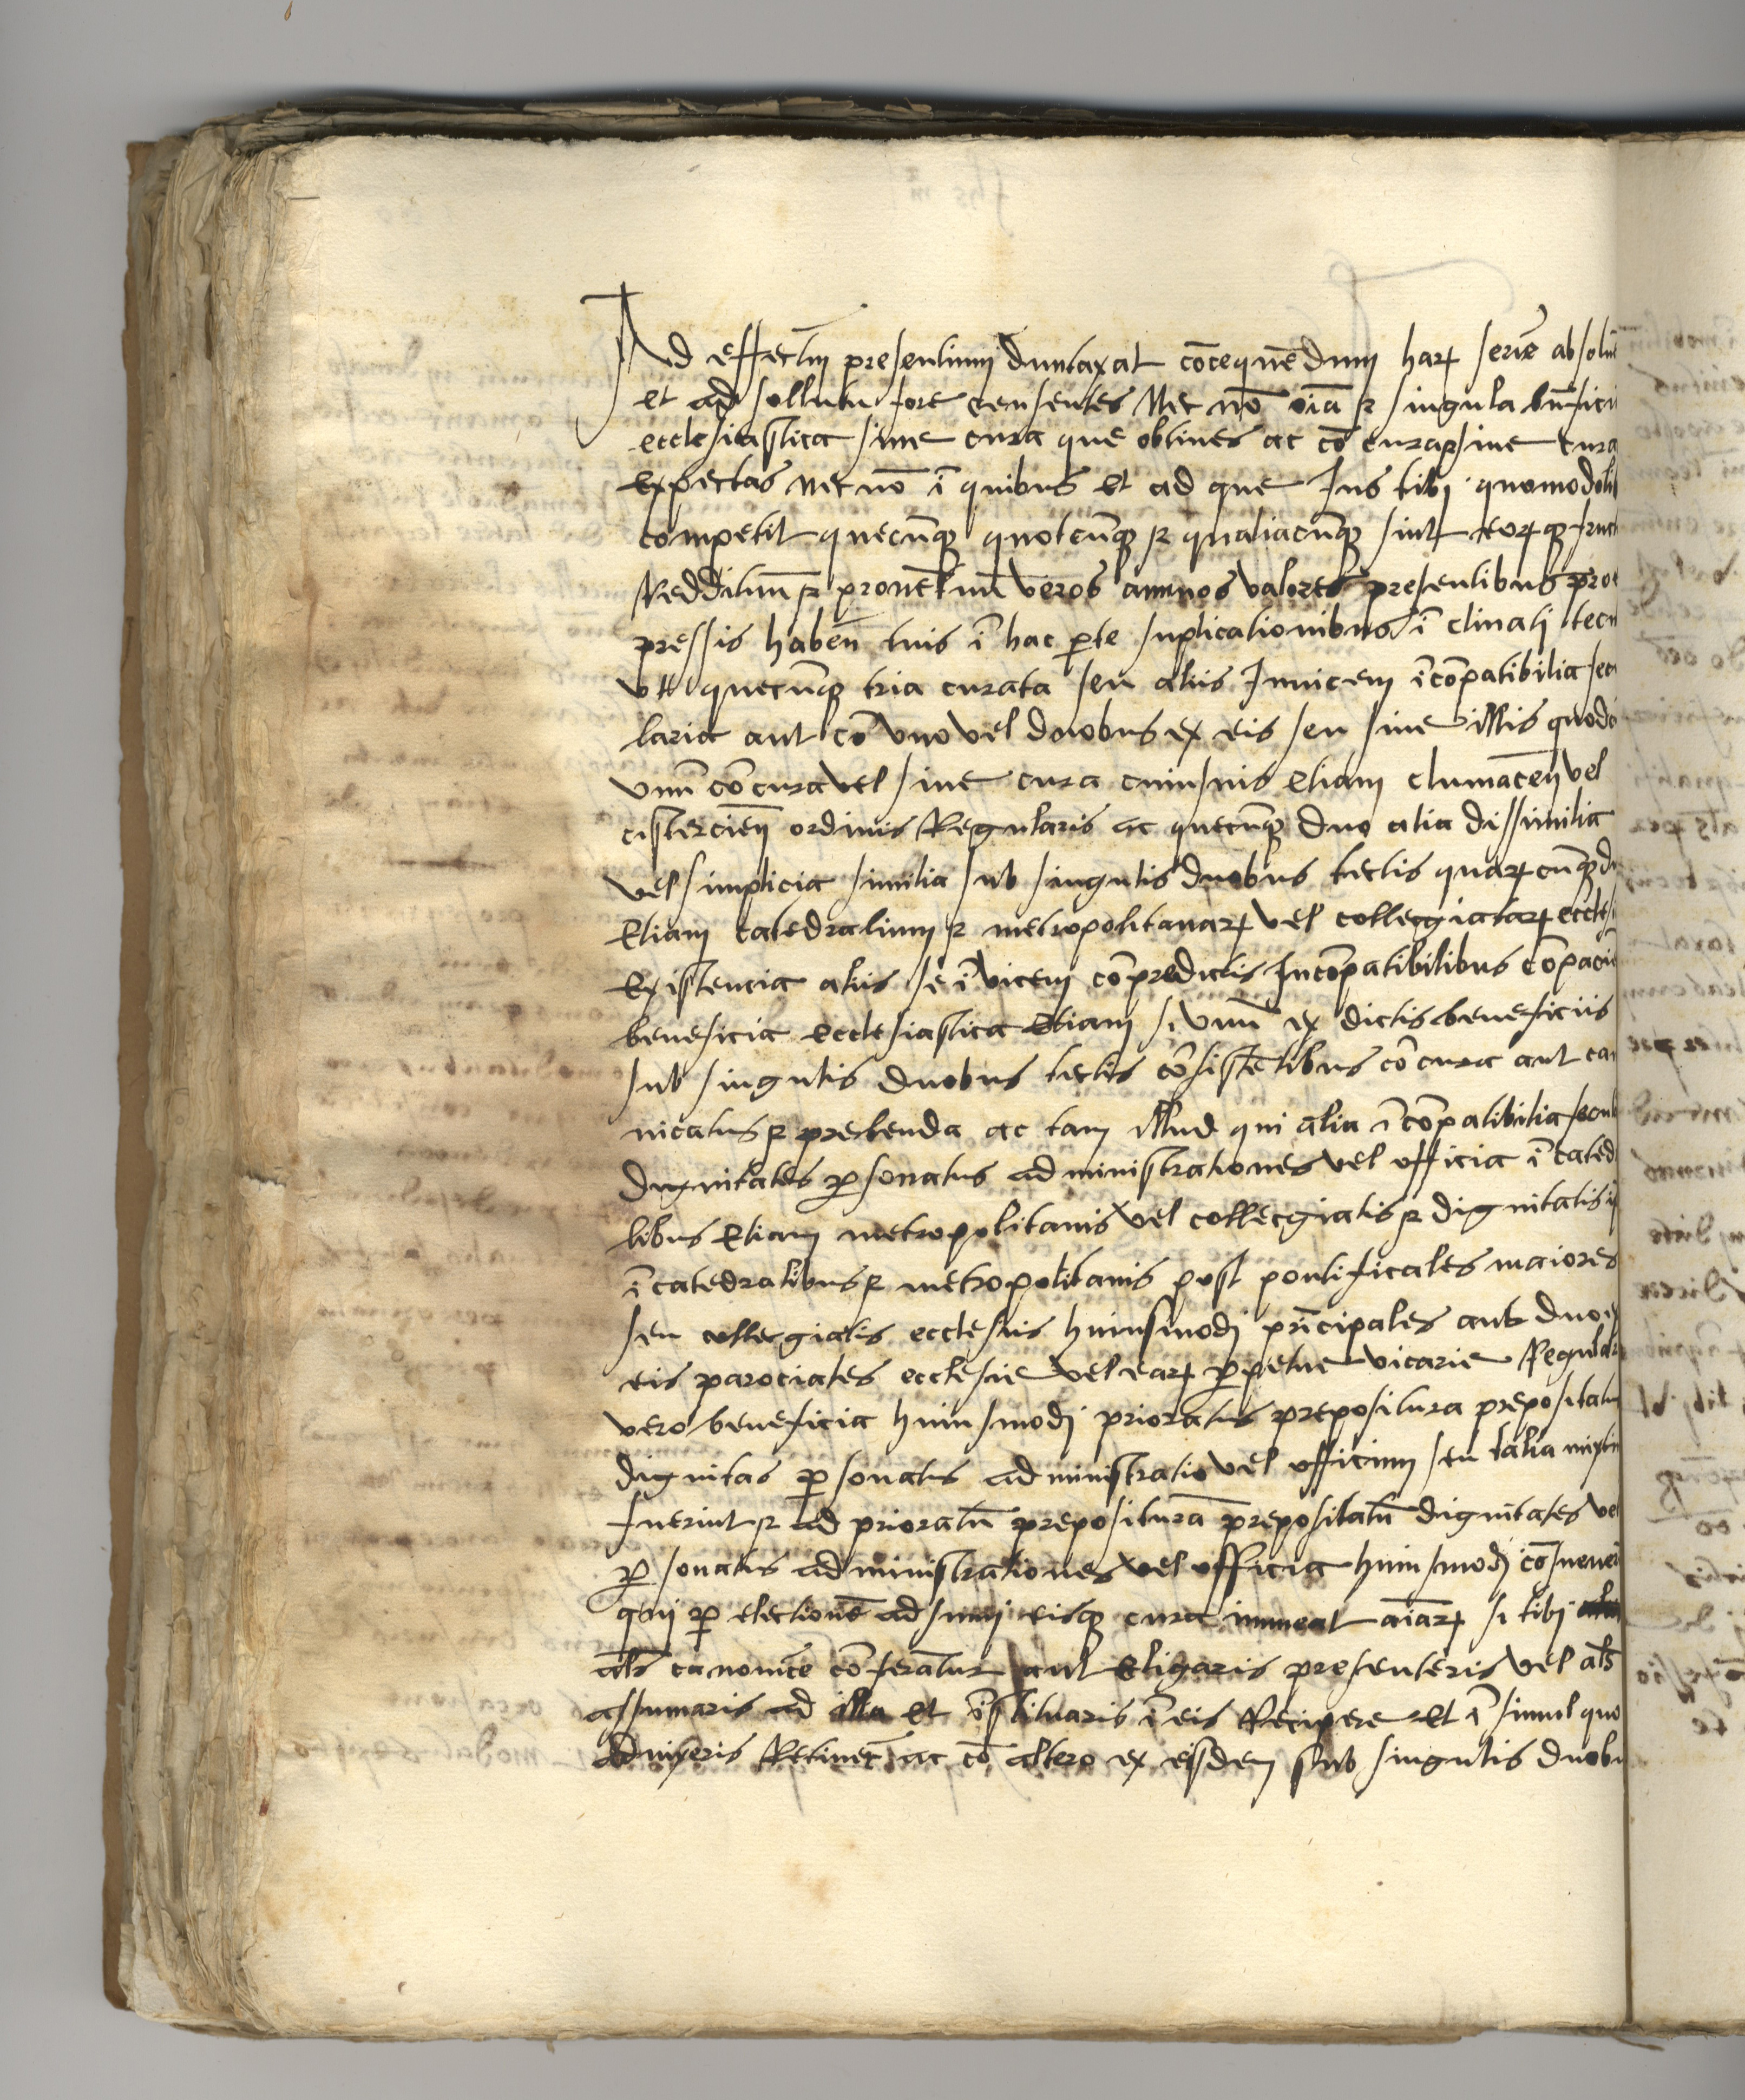 Ad effectuȝ presentiuȝ duntaxat cōcequēduȝ harꝝ serie absolue
et apsollutū fore censentes Nec nō oīa ⁊ singula bn̄fici
ecclesiastica sine cura que obtines ac cō cura ⁊ sine cura
Expectas nec nō ī quibus et ad que Jus tibj quomodoli
competit quecūqꝫ quotcūqꝫ ⁊ qualiacūqꝫ sint eorꝫqꝫ fruct
Reddituū ⁊ prouētuū veros annuos valores presentibus pro e
pressis habeñ tuis ī hac ꝑte suplicationibus ī clinatj tecu
vtt quecūqꝫ tria curata seu aliis Jnuicem īcōpatibilia secu
laria aut cō vno vel duobus ex eis seu sine illis quodc
vnū cō cura vel sine cura cuiusuis etiam clumaceñ vel
cistercieñ ordinis Regularis ac quecūqꝫ duo alia dissimilia
vel simplicia similia sub singulis duobus tectis quarꝫcūqꝫ d
Etiam catedralium ⁊ metropolitanarꝫ vel colleggiatarꝫ eccles
Existencia aliis se ī vicem cō predictis Jncōpatibilibus cōpaciē
beneficia ecclesiastica etiam si vnū ex dictis beneficiis
sub singulis duobus tectis cōsistētibus cō cura aut ca
nicatus ⁊ prebenda ac tam illud qui alia īcōpatibilia secul
dignitates ꝑsonatus administrationes vel officia ī cated
libus Etiam metropolitanis vel collecgiatis ⁊ dignitatis ip
ī catedralibus ⁊ metropolitanis post pontificales maiores
seu collecgiatis ecclesiis huiusmodj prīcipales aut duo e
eis parociales ecclesie vel earꝫ ꝑpetue vicarie Regular
vero beneficia huiusmodj prioratus prepositura prepositatus
dignitas ꝑsonatus administratio vel officium seu talia mixti
fuerint ⁊ ad prioratū prepositurā prepositatū dignitates ve
ꝑsonatus administrationes vel officia huiusmodj cōsueueri
quij ꝑ electionē adsumj eisqꝫ cura inmeat aīarꝫ si tibj
als̄ canonice cōferātur aut eligaris presenteris vel als̄
assumaris ad illa et īstituaris ī eis Recipere et ī simul quo
aduixeris Retinere ac cō altero ex eisdem sub singulis duobu